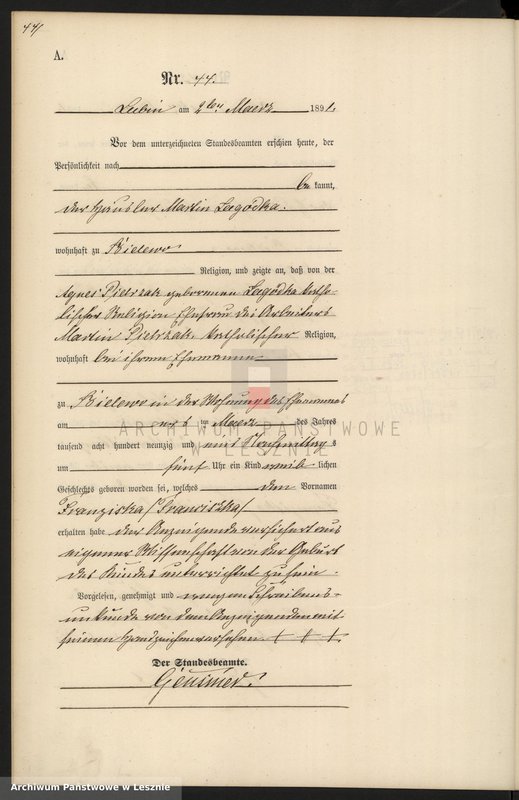 44
A.
Nr. 44.
Lubin am 2ten Maerz 1891.
Vor dem unterzeichneten Standesbeamten erschien heute, der
Persönlichkeit nach
be kannt,
der Häusler Martin Lagodka.
wohnhaft zu Bielewo
Religion, und zeigte an, daß von der
Agnes Pietrzak geborenen Lagodka katho-
lischer Religion Ehefrau des Arbeiters
Martin Pietrzak, katholischer Religion,
wohnhaft bei ihrem Ehemanne
zu Bielewo in der Wohnung des Ehemannes
am ersten Maerz des Jahres
tausend acht hundert neunzig und eins Nachmittags
um fünf Uhr ein Kind weib lichen
Geschlechts geboren worden sei, welches den Vornamen
Franziska /Franciszka/
erhalten habe der Anzeigende versichert aus
eigener Wissenschaft von der Geburt
des Kindes unterrichtet zu sein.
Vorgelesen, genehmigt und wegen Schreibens-
unkunde von dem Anzeigenden mit
seinem Handzeichen versehen + + +.
Der Standesbeamte.
ARCHIWUM PAŃSTWOWE
W LESZNIE
Archiwum Państwowe w Lesznie